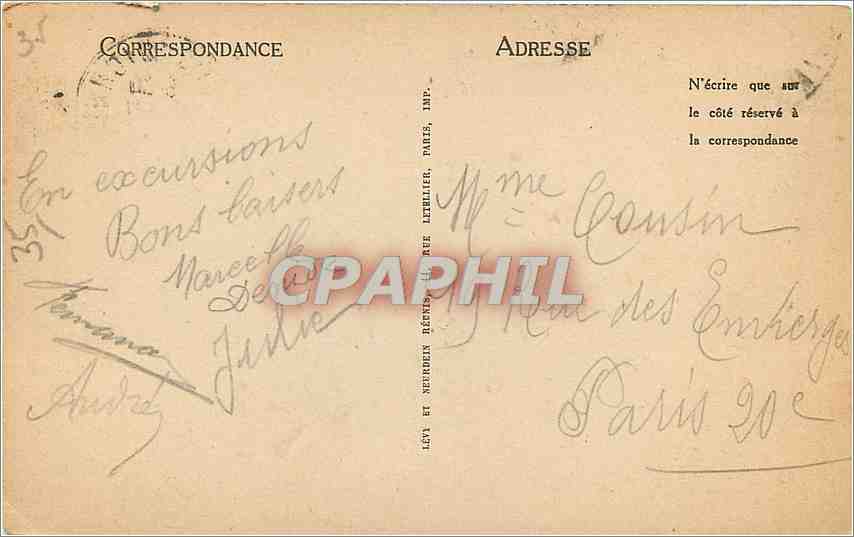 35
CORRESPONDANCE
ADRESSE
N'écrire que sur
le côté réservé à
la correspondance
En excursions
Bons baisers
Marcelle
Julie
André
35
LÉVY ET NEURDEIN RÉUNIS, 44, RUE LETELLIER, PARIS, IMP.
Mme Cousin
Rue des Envierges
Paris 20e
CPAPHIL